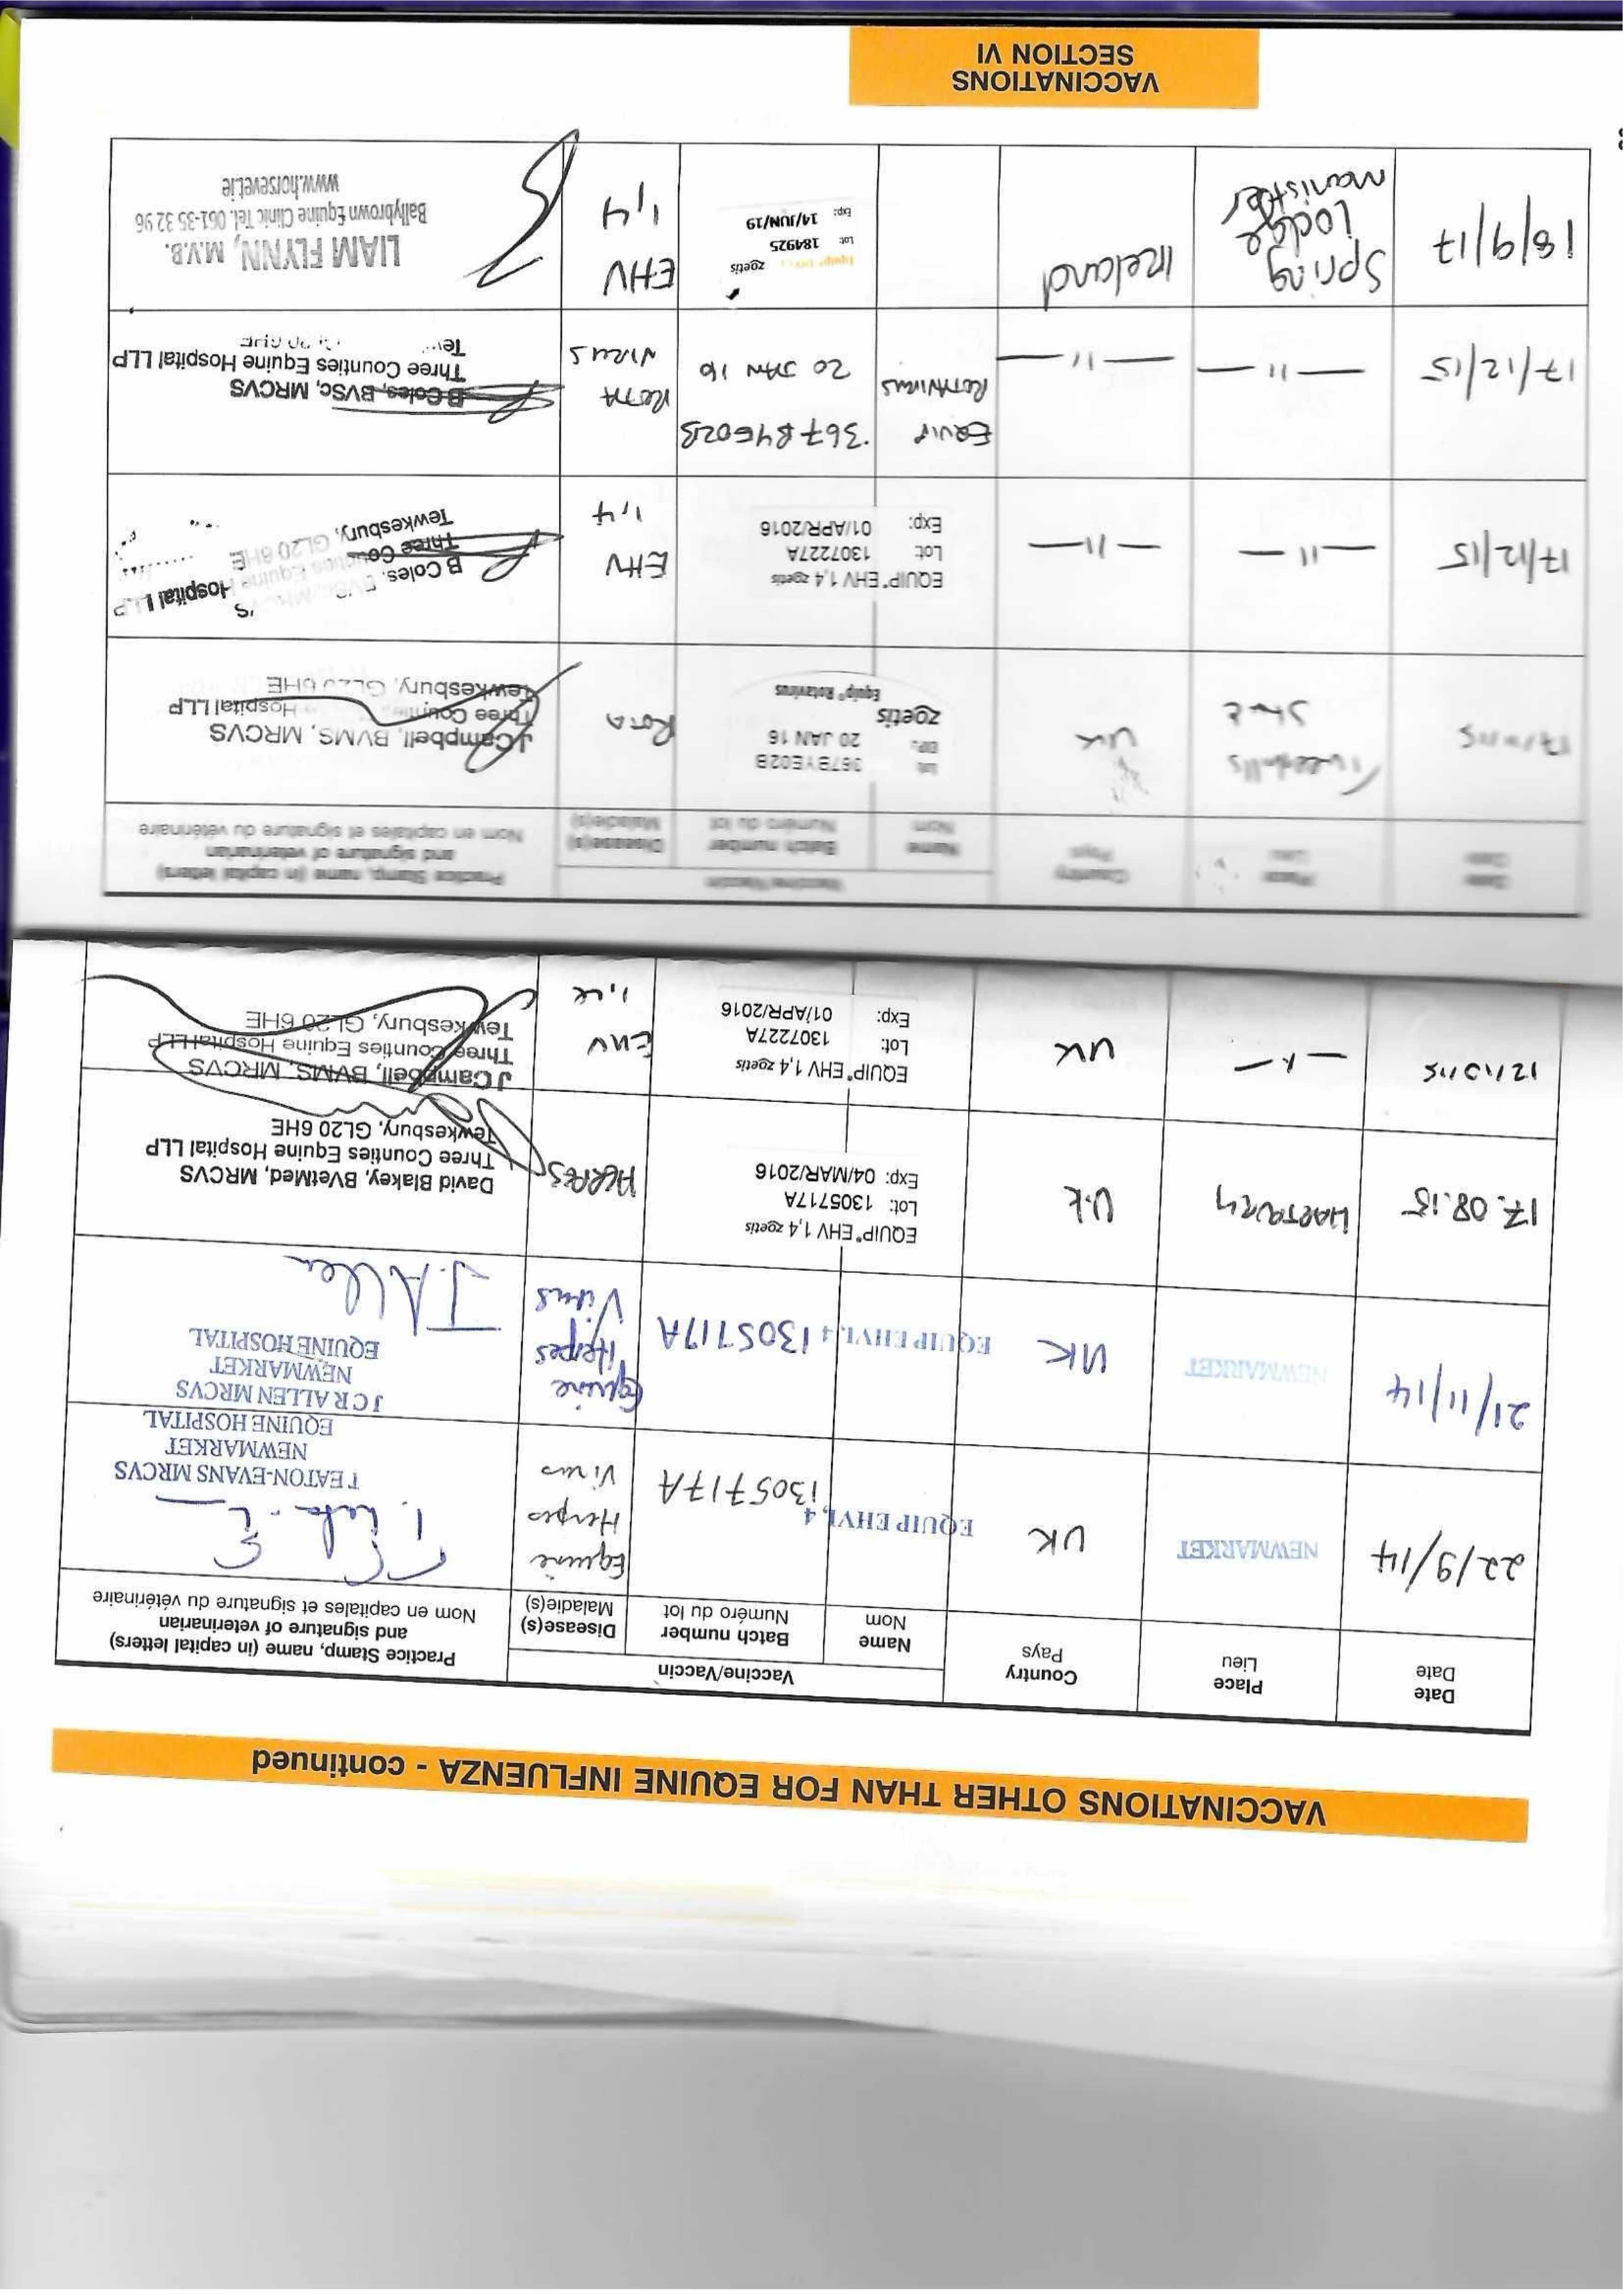 VACCINATIONS OTHER THAN FOR EQUINE INFLUENZA - continued
Date
Date
Place
Lieu
Country
Pays
Vaccine/Vaccin
Name
Nom
Batch number
Numéro du lot
Disease(s)
Maladie(s)
Practice Stamp, name (in capital letters)
and signature of veterinarian
Nom en capitales et signature du vétérinaire
22/9/14
NEWMARKET
UK
EQUIP EHV1,4
1305717A
Equine
Herpes
Virus
T EATON-EVANS MRCVS
NEWMARKET
EQUINE HOSPITAL
21/11/14
NEWMARKET
UK
EQUIP EHV1,4
1305717A
Equine
Herpes
Virus
J C R ALLEN MRCVS
NEWMARKET
EQUINE HOSPITAL
J. Allen
17.08.15
HARTPURY
U.K
EQUIP® EHV 1,4 zoetis
Lot: 1305717A
Exp: 04/MAR/2016
HERPES
David Blakey, BVetMed, MRCVS
Three Counties Equine Hospital LLP
Tewkesbury, GL20 6HE
UK
EQUIP® EHV 1,4 zoetis
Lot: 1307227A
Exp: 01/APR/2016
EHV
J Campbell, BVMS, MRCVS
Three Counties Equine Hospital LLP
Tewkesbury, GL20 6HE
Date
Date
Place
Lieu
Country
Pays
Vaccine/Vaccin
Name
Nom
Batch number
Numéro du lot
Disease(s)
Maladie(s)
Practice Stamp, name (in capital letters)
and signature of veterinarian
Nom en capitales et signature du vétérinaire
Stud
UK
Lot: 367BYE02B
EXP: 20 JAN 16
zoetis
Equip® Rotavirus
Rota
J Campbell, BVMS, MRCVS
Three Counties Hospital LLP
Tewkesbury, GL20 6HE
17/12/15
— 11 —
— 11 —
EQUIP® EHV 1,4 zoetis
Lot: 1307227A
Exp: 01/APR/2016
EHV
1,4
B Coles,
Three Counties Equine Hospital LLP
Tewkesbury, GL20 6HE
17/12/15
— 11 —
— 11 —
EQUIP
ROTAVIRUS
367BYE02B
20 JAN 16
ROTA
VIRUS
B Coles, BVSc, MRCVS
Three Counties Equine Hospital LLP
18/9/17
Spring
Lodge
Manister
Ireland
zoetis
Lot: 184925
Exp: 14/JUN/19
EHV
1,4
LIAM FLYNN, M.V.B.
Ballybrown Equine Clinic Tel. 061-35 32 96
www.horsevet.ie
VACCINATIONS
SECTION VI